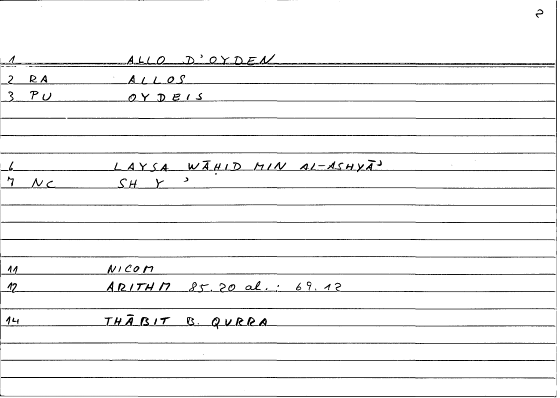 2
1 ALLO D'OYDEN
2 RA ALLOS
3 PU OYDEIS
6 LAYSA WĀḤID MIN AL-ASHYĀʾ
7 NC SH Y ʾ
11 NICOM
12 ARITHM 85.20 al.: 69.12
14 THĀBIT B. QURRA